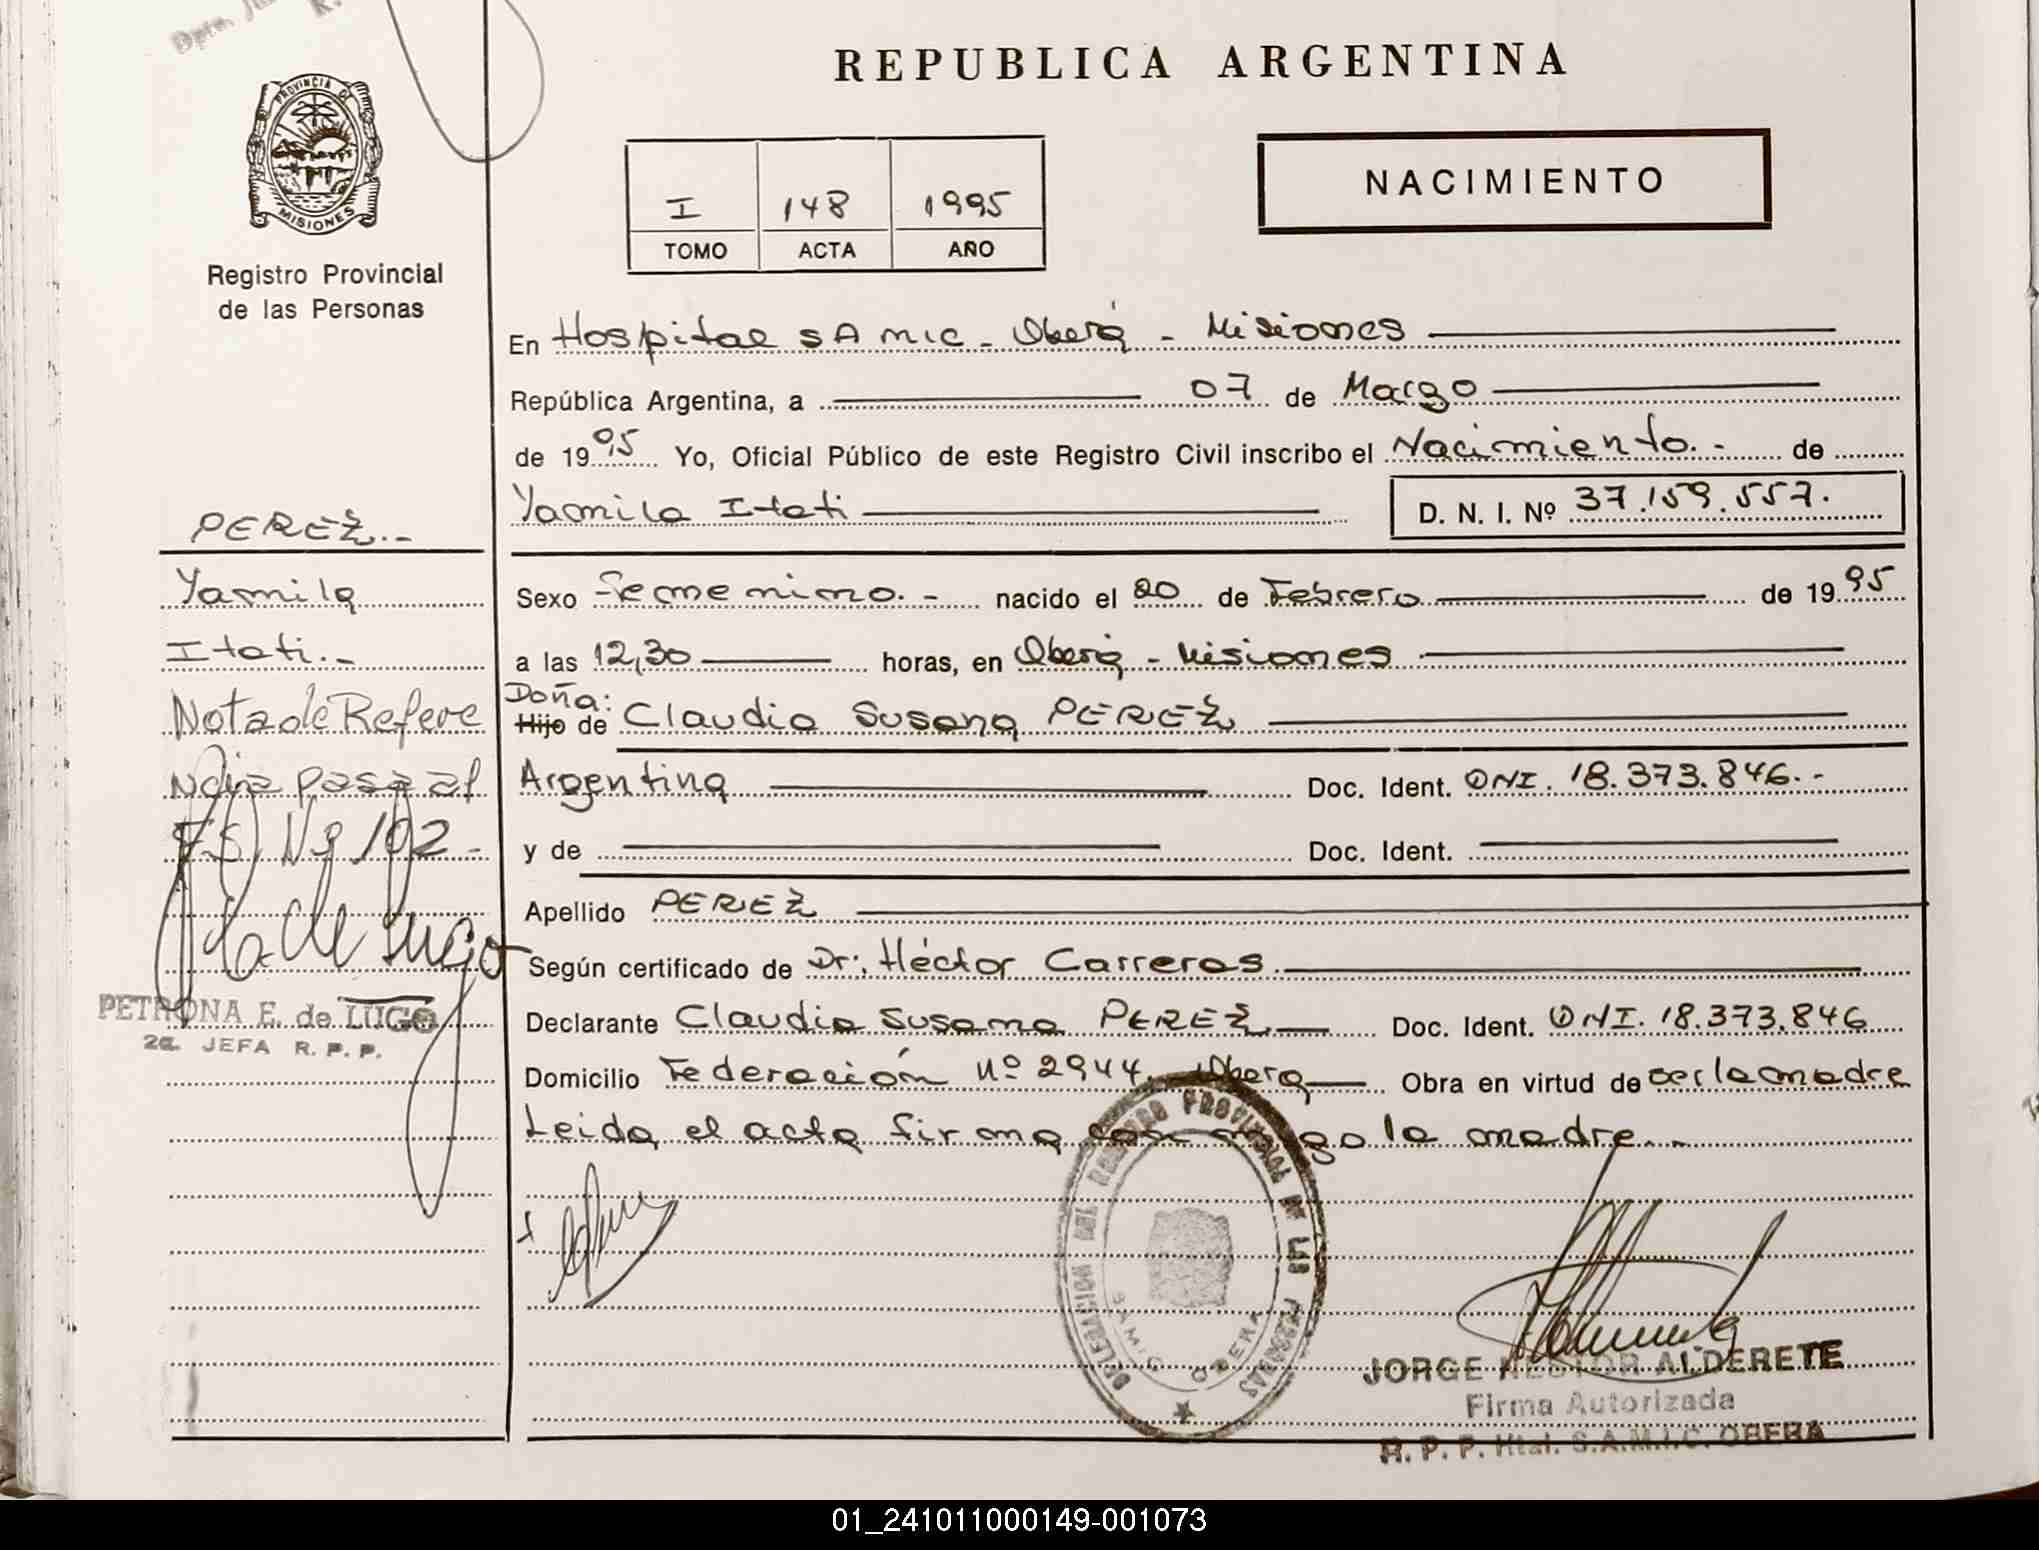 Dpto. Ju
REPUBLICA ARGENTINA
PROVINCIA DE
MISIONES
Registro Provincial
de las Personas
I 148 1995
TOMO ACTA AÑO
NACIMIENTO
En Hospital SAMIC - Oberá - Misiones
República Argentina, a 07 de Marzo
de 1995 Yo, Oficial Público de este Registro Civil inscribo el Nacimiento.- de
Yamila Itati D. N. I. Nº 37.159.557.
PEREZ.-
Yamila
Itati.-
Nota de Refere
Ncia pasa al
Fs) Nº 102-
PETRONA E. de LUGO
2a. JEFA R. P. P.
Sexo Femenino.- nacido el 20 de Febrero de 1995
a las 12,30 horas, en Oberá - Misiones
Doña:
Hijo de Claudia Susana PEREZ
Argentina Doc. Ident. DNI. 18.373.846.-
y de Doc. Ident.
Apellido PEREZ
Según certificado de Dr. Héctor Carreras
Declarante Claudia Susana PEREZ Doc. Ident. DNI. 18.373.846
Domicilio Federación Nº 2944. Oberá Obra en virtud de ser la madre
Leida el acta firma con migo la madre.-
DELEGACION DEL REGISTRO PROVINCIAL DE LAS PERSONAS
SAMIC OBERA
JORGE NESTOR ALDERETE
Firma Autorizada
R. P. P. Htal. S.A.M.I.C. OBERA
01_241011000149-001073